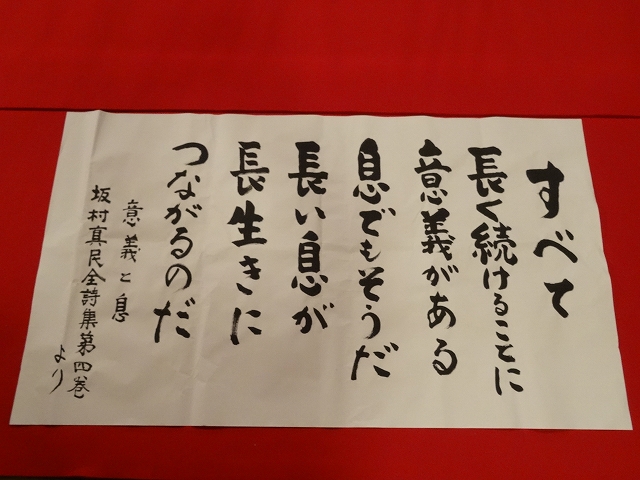 すべて
長く続けることに
意義がある
息でもそうだ
長い息が
長生きに
つながるのだ
意義と息
坂村真民全詩集第四巻
より